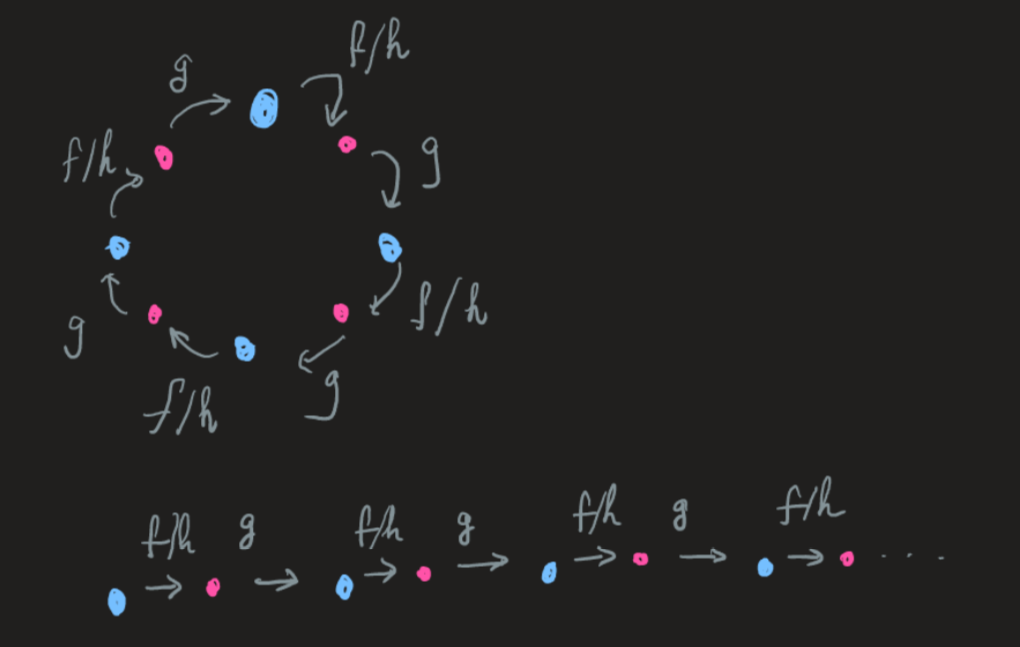 f/h
g
f/h
g
f/h
g
f/h
g
f/h g f/h g f/h g f/h ....